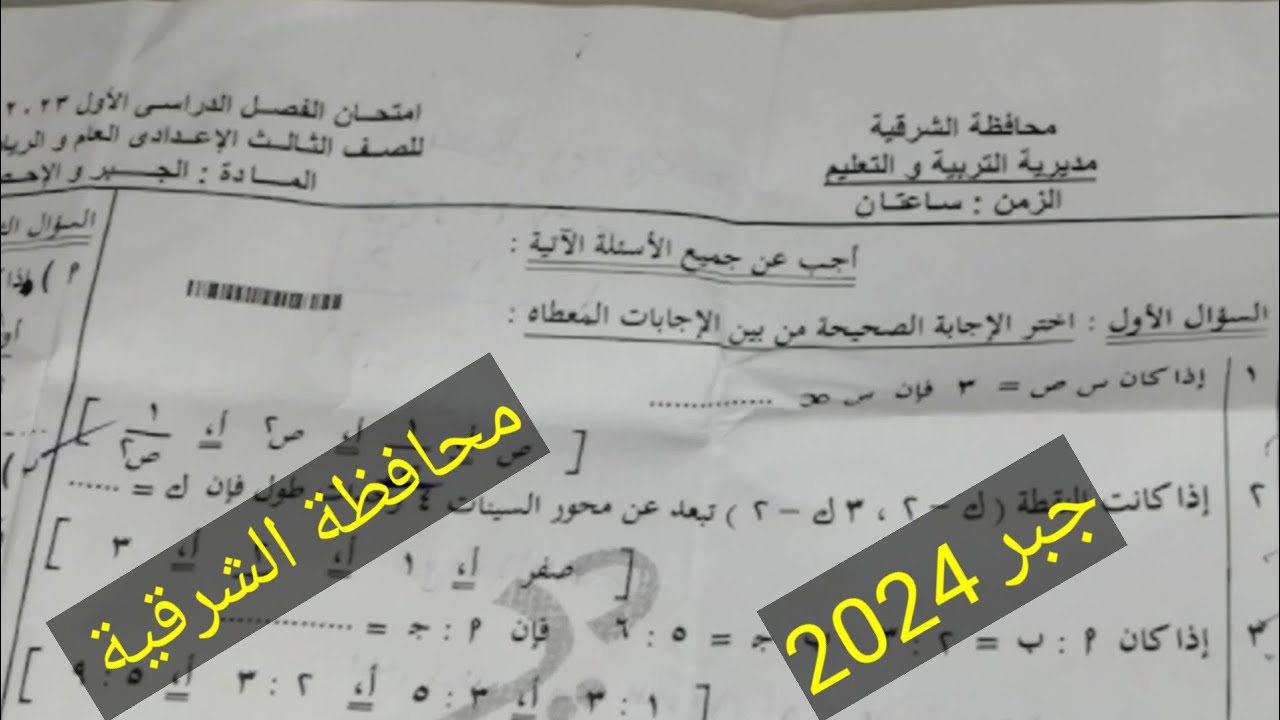 محافظة الشرقية
مديرية التربية و التعليم
الزمن : ساعتان
امتحان الفصل الدراسى الأول ٢٠٢٣
للصف الثالث الإعدادى العام و
المادة : الجبر و
أجب عن جميع الأسئلة الآتية :
السؤال الأول : اختر الإجابة الصحيحة من بين الإجابات المعطاه :
١ إذا كان س ص = ٣ فإن س ∝ ............
[ ص أ، ١ أ، ص٢ أ، ١/ص٢ ]
٢ إذا كانت النقطة ( ك – ٢ ، ٣ ك – ٢ ) تبعد عن محور السينات ٤ طول فإن ك = ......
[ صفر أ، ١ أ، أ، ٣ ]
٣ إذا كان ٩ : ب = ٢ : ٣ ، ب : جـ = ٥ : ٦ فإن ٩ : جـ = ............
[ ١ : ٣ أ، ٣ : ٥ أ، ٢ : ٣ أ، ٥ : ٩ ]
السؤال
٩ )
محافظة الشرقية
جبر 2024